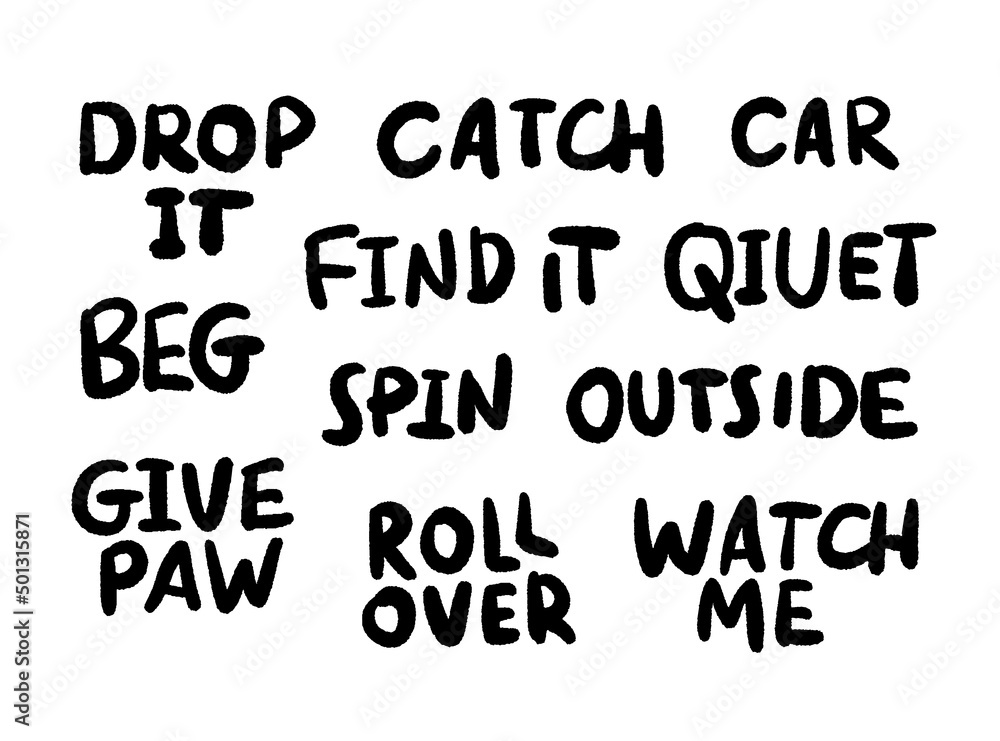 DROP
IT
CATCH
CAR
FIND IT
QIUET
BEG
SPIN
OUTSIDE
GIVE
PAW
ROLL
OVER
WATCH
ME
Adobe Stock | #501315871